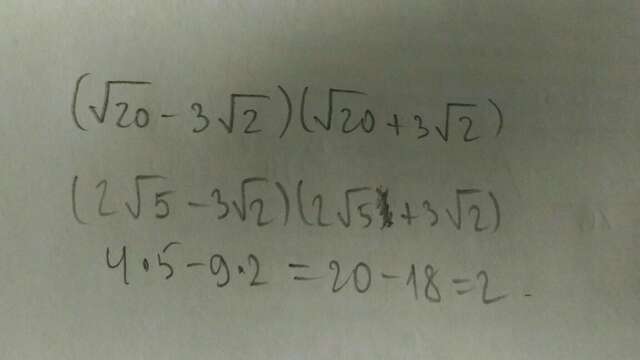 (√20 - 3√2)(√20 + 3√2)
(2√5 - 3√2)(2√5 + 3√2)
4·5 - 9·2 = 20 - 18 = 2.